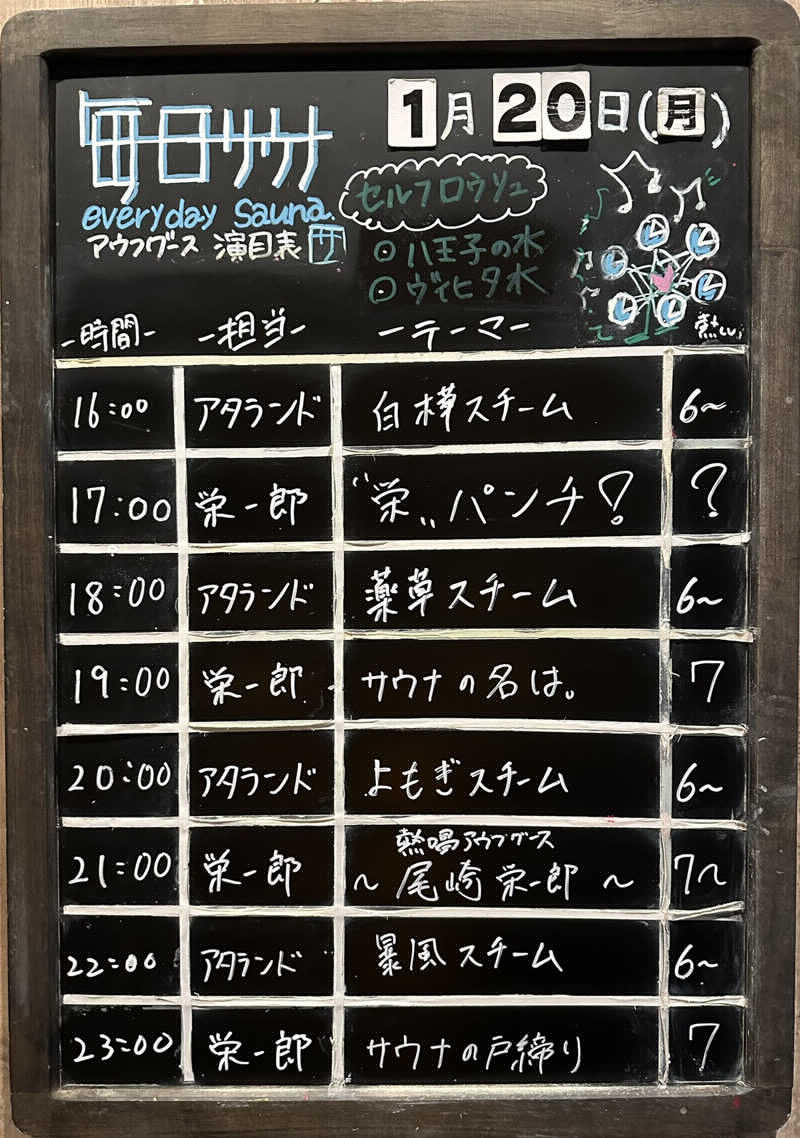 毎日サウナ
everyday sauna.
アウフグース 演目表 サ
1月20日(月)
セルフロウリュ
◎八王子の水
◎ヴィヒタ水
-時間- -担当- -テーマー 熱い
16:00 アタランド 白樺スチーム 6~
17:00 栄一郎 "栄„パンチ! ?
18:00 アタランド 薬草スチーム 6~
19:00 栄一郎 サウナの名は。 7
20:00 アタランド よもぎスチーム 6~
21:00 栄一郎 熱唱アウフグース 7~
~尾崎栄一郎~
22:00 アタランド 暴風スチーム 6~
23:00 栄一郎 サウナの戸締り 7